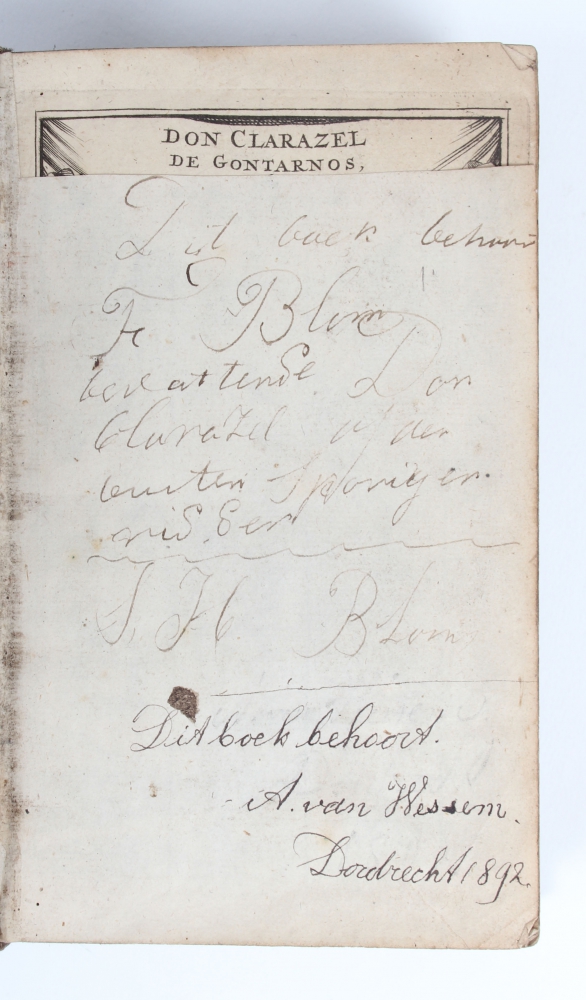 DON CLARAZEL
DE GONTARNOS,
Dit boek behoort
Blom
bevattende Don
Clarazel of den
buiten Sporigen
ridder
Blom
Dit boek behoort.
A. van Wessem.
Dordrecht 1892.